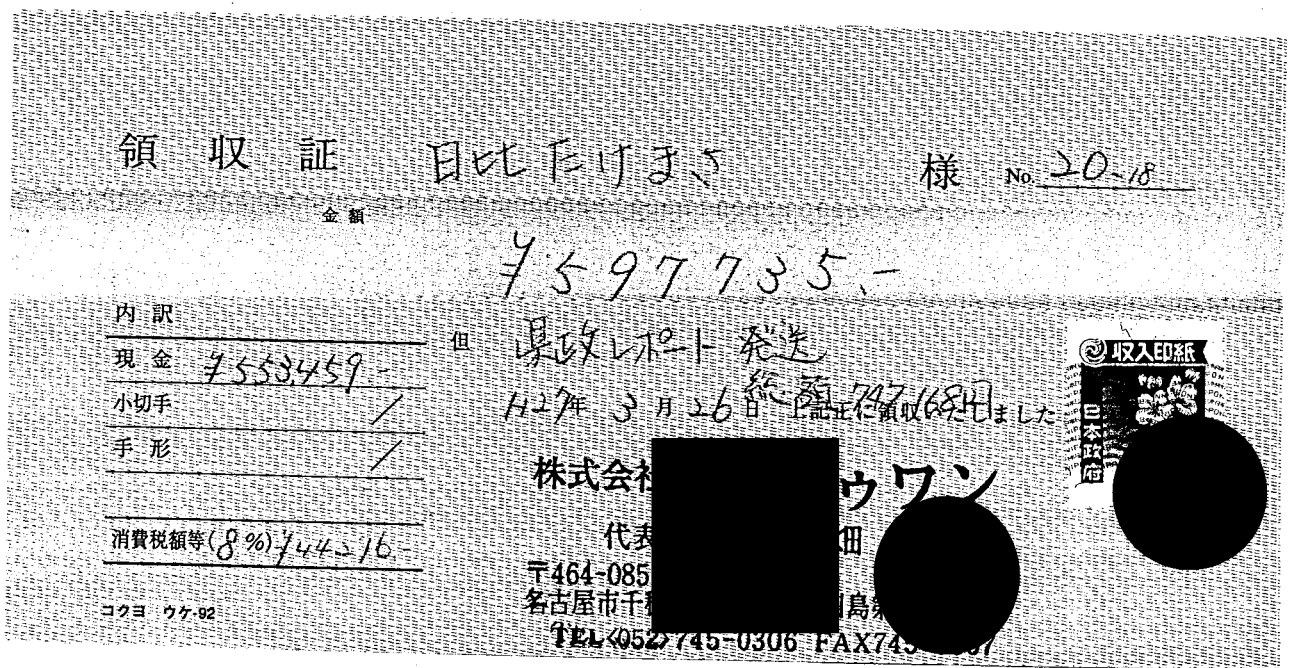 領収証 日比たけまさ 様 No. 20-18
金額
¥597735.-
内訳
現金 ¥553,459-
小切手 /
手形 /
消費税額等(8%) ¥44216-
但 県政レポート発送
総額 747,168円
H27年 3月 26日 上記正に領収いたしました
収入印紙
日本政府
株式会社 ゥワン
代表 畑
〒464-085
名古屋市千種 島
TEL<052>745-0306 FAX745 7
コクヨ ウケ-92